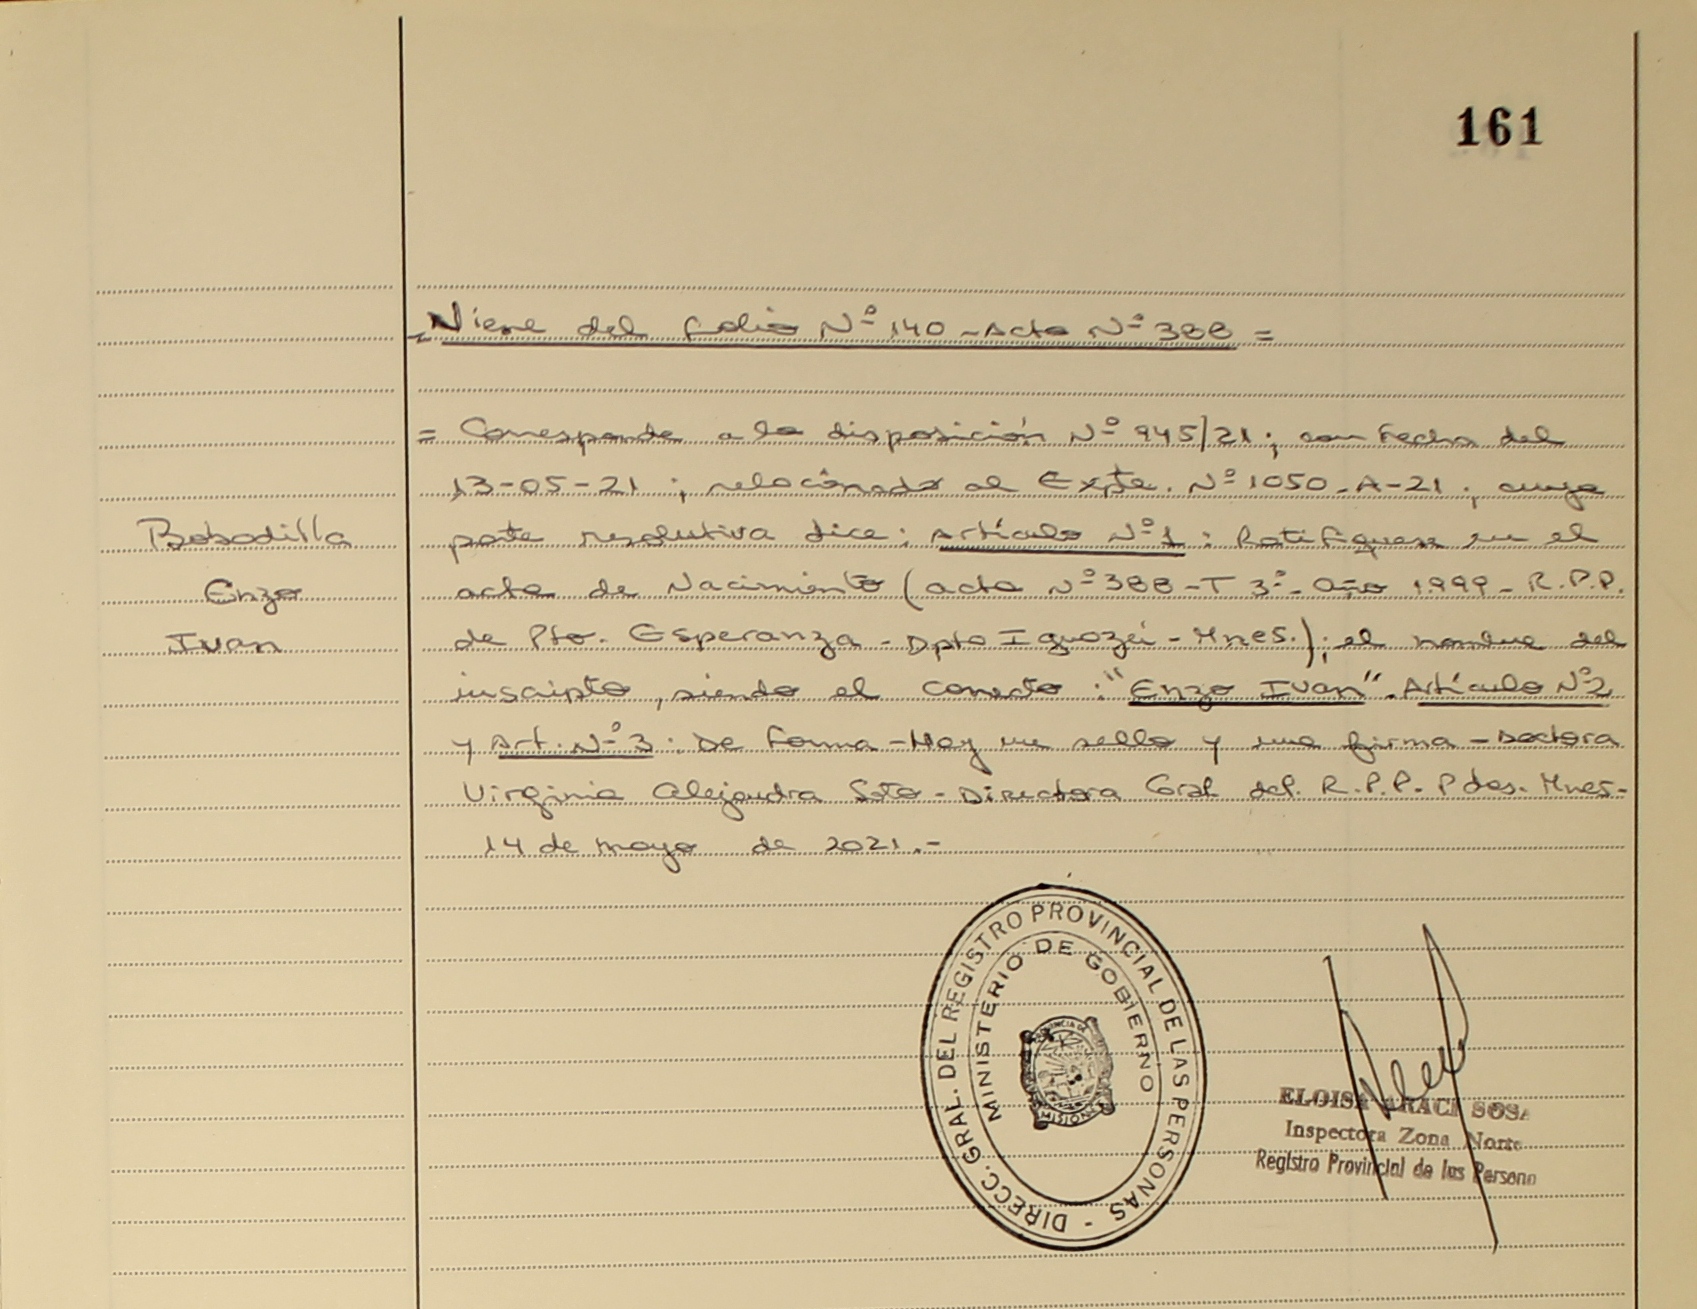 161
= Viene del folio Nº 140 - Acta Nº 388 =
= Corresponde a la disposición Nº 945/21; con Fecha del
13-05-21; relacionado al Expte. Nº 1050-A-21; cuya
Bobadilla
parte resolutiva dice: Artículo Nº 1: Ratifiquese en el
Enzo
acta de Nacimiento (acta Nº 388 - T 3º - Año 1.999 - R.P.P.
Ivan
de Pto. Esperanza - Dpto Iguazú - Mnes.); el nombre del
inscripto, siendo el correcto: "Enzo Ivan". Artículo Nº 2
y Art. Nº 3: De Forma - Hay un sello y una firma - Doctora
Virginia Alejandra Soto - Directora Gral del R.P.P. Pdas. Mnes-
14 de mayo de 2021.-
DIRECC. GRAL. DEL REGISTRO PROVINCIAL DE LAS PERSONAS -
MINISTERIO DE GOBIERNO
PROVINCIA DE
MISIONES
ELOISA ARACI SOSA
Inspectora Zona Norte
Registro Provincial de las Persona